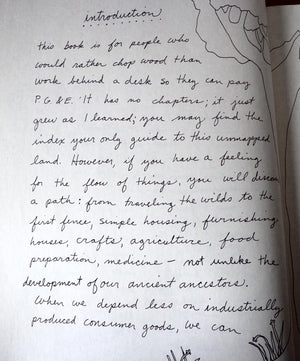 introduction
this book is for people who
would rather chop wood than
work behind a desk so they can pay
P.G.&E. It has no chapters; it just
grew as I learned; you may find the
index your only guide to this unmapped
land. However, if you have a feeling
for the flow of things, you will discern
a path: from traveling the wilds to the
first fence, simple housing, furnishing
houses, crafts, agriculture, food
preparation, medicine — not unlike the
development of our ancient ancestors.
When we depend less on industrially
produced consumer goods, we can